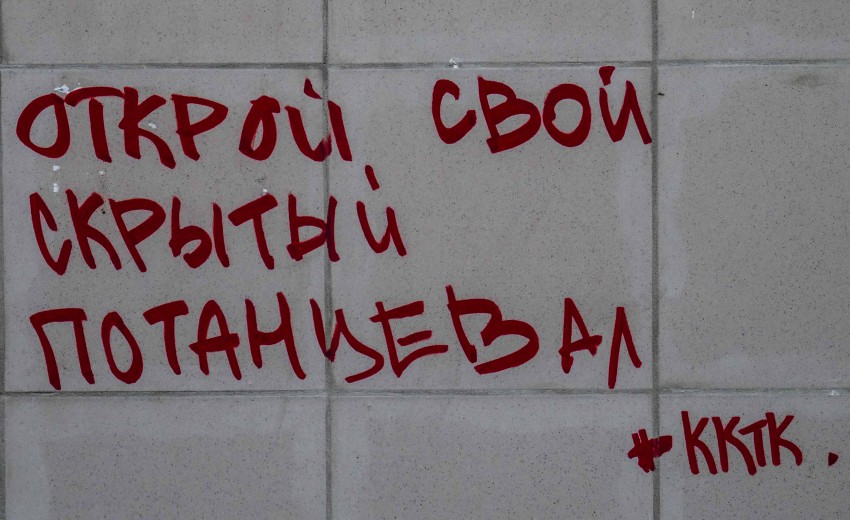 ОТКРОЙ СВОЙ
СКРЫТЫЙ
ПОТАНЦЕВАЛ
#ККТК.